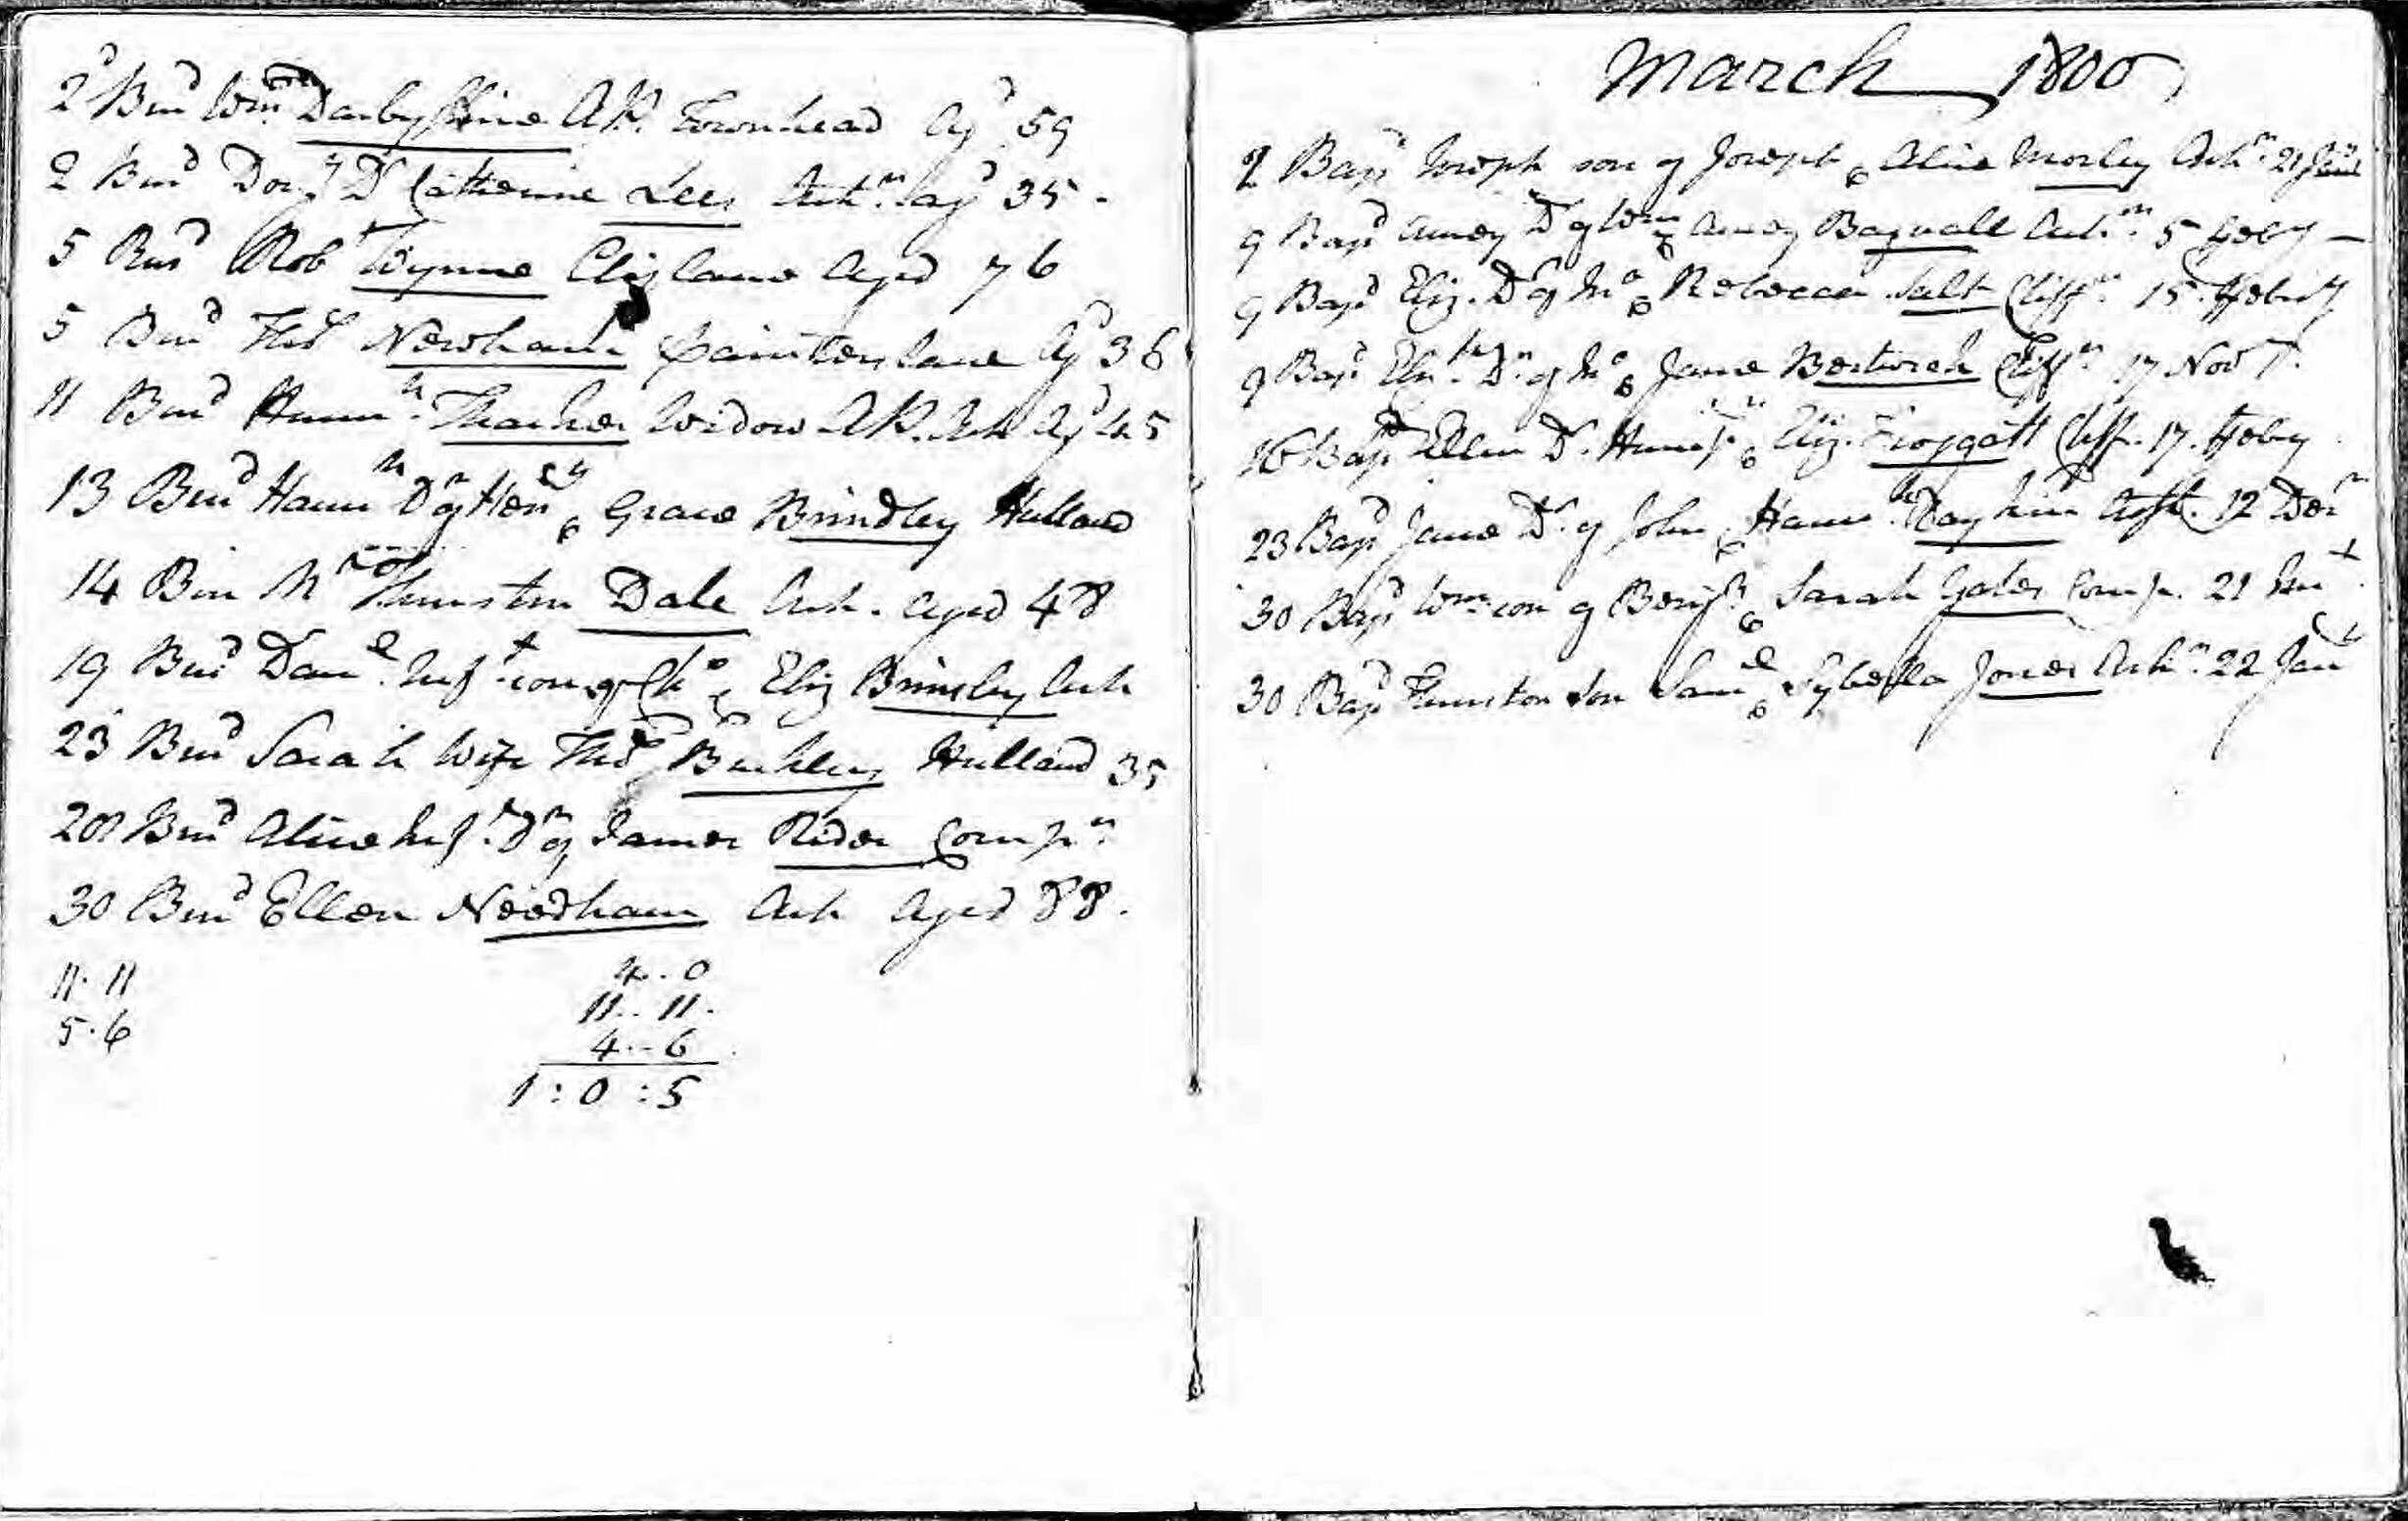 2 Bur^d W^m Darbyshire A.P. Townhead Ag^d 59
2 Bur^d Dor^y D^r Catherine Lees Ash^n ag^d 35 -
5 Bur^d Rob^t Wynne Aged 76
5 Bur^d Tho^s Newham lane Ag^d 36
11 Bur^d Hann^h Widow A.P. Ash Ag^d 45
13 Bur^d Hann^h D^r of Hen^y & Grace Brindley Hulland
14 Bur M^r Thurston Dale Ash. aged 48
19 Bur^d Dan^l Inf^t son of & Eliz Brinsley Ash
23 Bur^d Sarah Wife Tho^s Buckley Hulland 35
Bur^d Alice Inf^t D^r of James Rider Comp^n
30 Bur^d Ellen Needham Ash Aged 88.
11. 11
5. 6
4. 0
11.. 11.
4 -- 6
1 : 0 : 5
March 1800
2 Bap^d Joseph son of Joseph & Alice Morley Ash^n 21
9 Bap^d Amey D^r of W^m & Amey Bagnall Ash^n 5 Feby -
9 Bap^d Eliz. D^r of Jn^o & Rebecca Salt Cliff^n 15.
9 Bap^d D^r of Jn^o & Jane Bestwick Cliff^n 17 Nov^r
16 Bap^d Ellen D^r & Eliz. Froggatt Cliff. 17. Feby
23 Bap^d Jane D^r of John & Hann^h Daykin Ash. 12 Dec^r
30 Bap^d W^m son of Benj^n & Sarah Yates Comp. 21
30 Bap^d Thurston Son Sam^l & Sybella Jones Ash^n 22 Jan^y